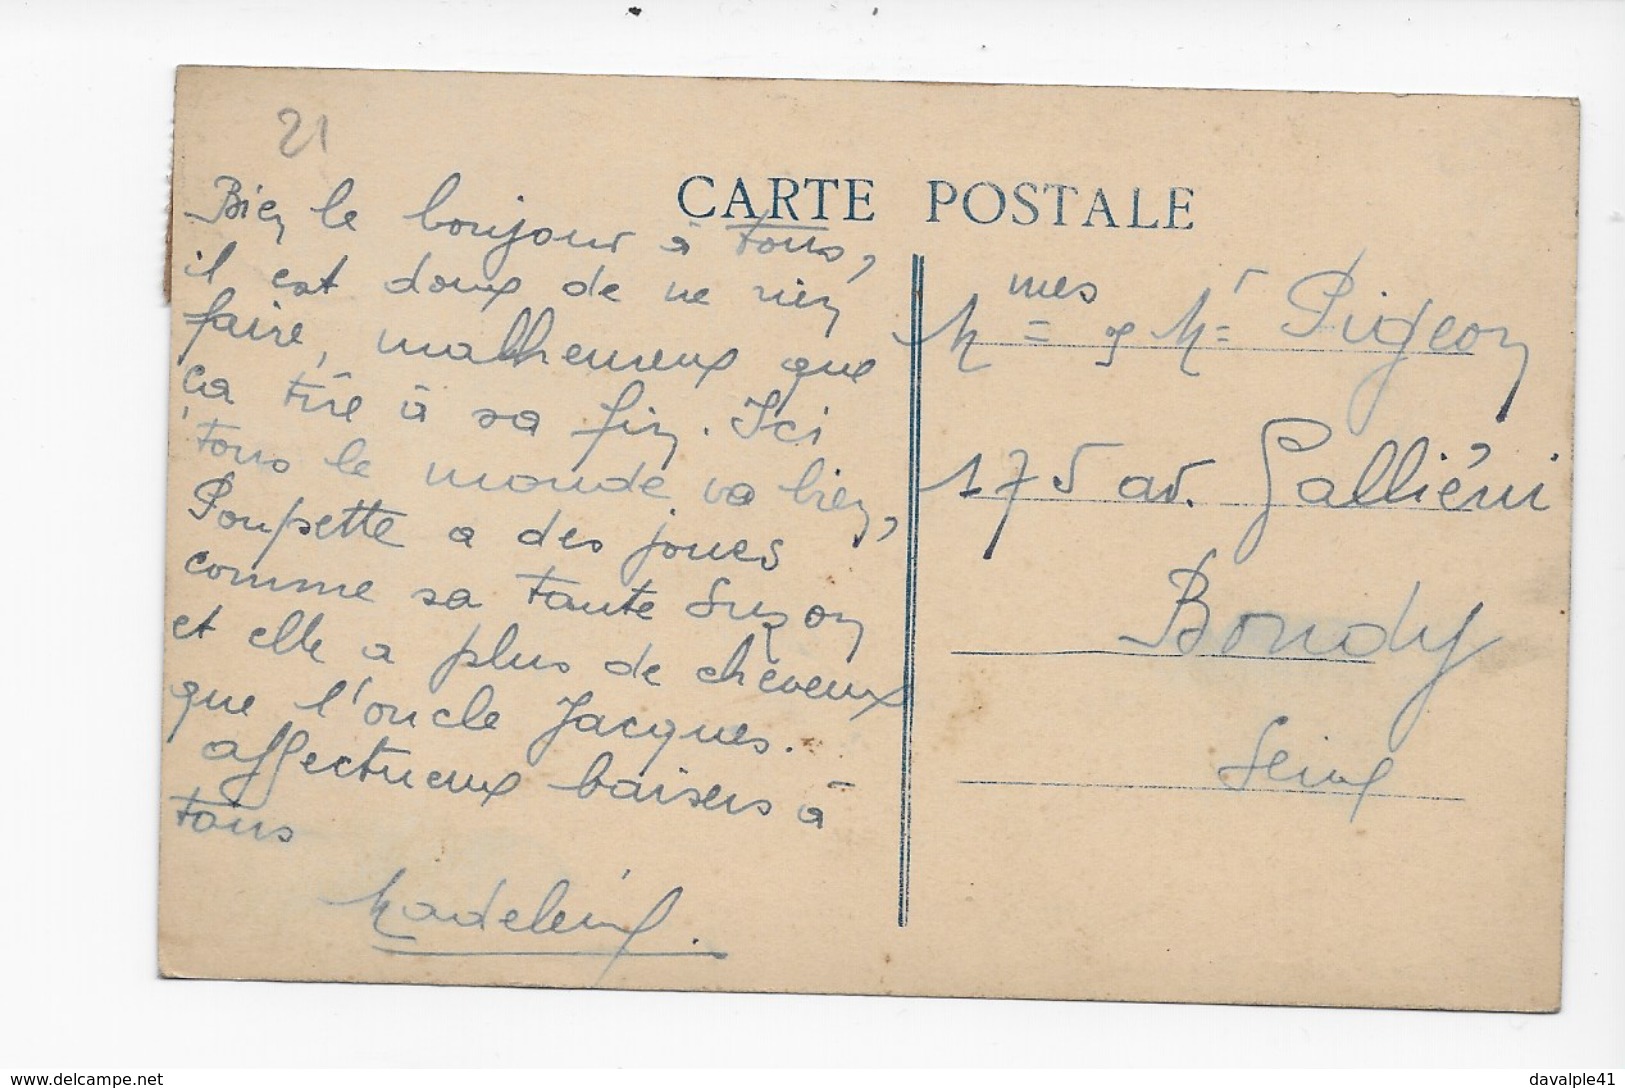 21
CARTE POSTALE
Bien le bonjour à tous,
il est doux de ne rien
faire, malheureux que
ça tire à sa fin. Ici
tous le monde va bien,
Poupette a des joues
comme sa tante Suzon
et elle a plus de cheveux
que l'oncle Jacques.
affectueux baisers à
tous
Madeleine.
M mes et Mr Pigeon
175 av. Galliéni
Bondy
Seine
www.delcampe.net
davalple41